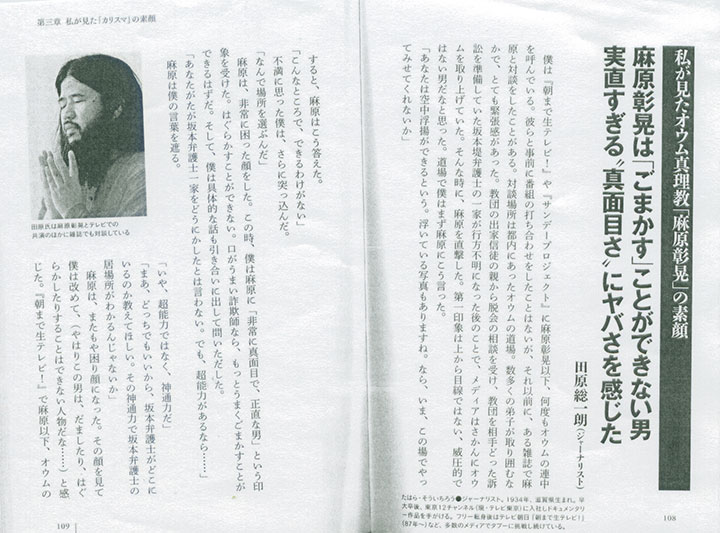 私が見たオウム真理教「麻原彰晃」の素顔
麻原彰晃は「ごまかす」ことができない男
実直すぎる〝真面目さ〟にヤバさを感じた
田原総一朗(ジャーナリスト)
僕は『朝まで生テレビ!』や『サンデープロジェクト』に麻原彰晃以下、何度もオウムの連中
を呼んでいる。彼らと事前に番組の打ち合わせをしたことはないが、それ以前に、ある雑誌で麻
原と対談をしたことがある。対談場所は都内にあったオウムの道場。数多くの弟子が取り囲むな
かで、とても緊張感があった。教団の出家信徒の親から脱会の相談を受け、教団を相手どった訴
訟を準備していた坂本堤弁護士の一家が行方不明になった後のことで、メディアはさかんにオウ
ムを取り上げていた。そんな時に、麻原を直撃した。第一印象は上から目線ではない、威圧的で
はない男だなと思った。道場で僕はまず麻原にこう言った。
「あなたは空中浮揚ができるという。浮いている写真もありますね。なら、いま、この場でやっ
てみせてくれないか」
たはら・そういちろう●ジャーナリスト。1934年、滋賀県生まれ。早
大卒後、東京12チャンネル(現・テレビ東京)に入社しドキュメンタリ
ー作品を手がける。フリー転身後はテレビ朝日『朝まで生テレビ!』
('87年〜)など、多数のメディアでタブーに挑戦し続けている。
108
第三章 私が見た「カリスマ」の素顔
すると、麻原はこう答えた。
「こんなところで、できるわけがない」
不満に思った僕は、さらに突っ込んだ。
「なんで場所を選ぶんだ」
麻原は、非常に困った顔をした。この時、僕は麻原に「非常に真面目で、正直な男」という印
象を受けた。はぐらかすことができない。口がうまい詐欺師なら、もっとうまくごまかすことが
できるはずだ。そして、僕は具体的な話も引き合いに出して問いただした。
「あなたがたが坂本弁護士一家をどうにかしたとは言わない。でも、超能力があるなら……」
麻原は僕の言葉を遮る。
田原氏は麻原彰晃とテレビでの
共演のほかに雑誌でも対談している
「いや、超能力ではなく、神通力だ」
「まあ、どっちでもいいから、坂本弁護士がどこに
いるのか教えてほしい。その神通力で坂本弁護士の
居場所がわかるんじゃないか」
麻原は、またもや困り顔になった。その顔を見て
僕は改めて、(やはりこの男は、だましたり、はぐ
らかしたりすることはできない人物だな……)と感
じた。『朝まで生テレビ!』で麻原以下、オウムの
109